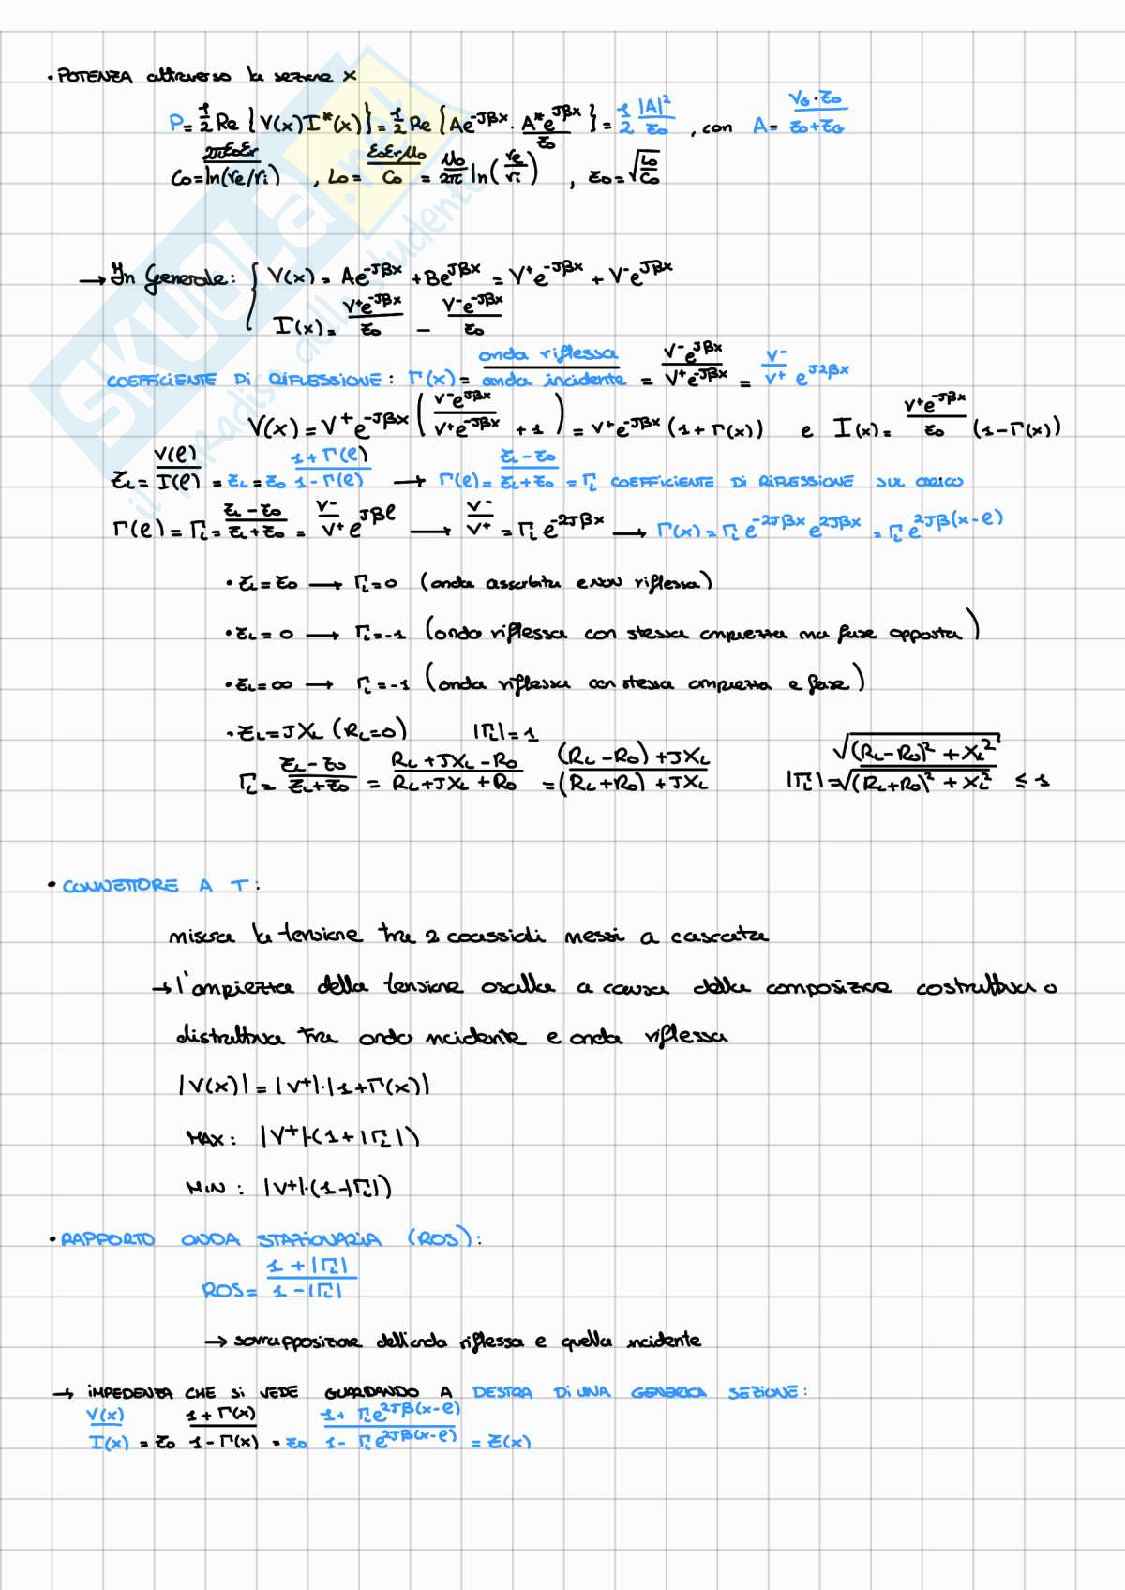 • POTENZA attraverso la sezione x
P = 1/2 Re { V(x) I*(x) } = 1/2 Re { Ae^-Jβx · A*e^Jβx / Z0 } = 1/2 |A|²/Z0 , con A = VG · Z0 / Z0+ZG
C0 = 2πε0εr / ln(re/ri) , L0 = ε0εrμ0 / C0 = μ0/2π ln(re/ri) , Z0 = √(L0/C0)
→ In Generale: { V(x) = Ae^-Jβx + Be^Jβx = V⁺e^-Jβx + V⁻e^Jβx
I(x) = V⁺e^-Jβx / Z0 − V⁻e^-Jβx / Z0
COEFFICIENTE DI RIFLESSIONE: Γ(x) = onda riflessa / onda incidente = V⁻e^Jβx / V⁺e^-Jβx = V⁻/V⁺ e^J2βx
V(x) = V⁺e^-Jβx ( V⁻e^Jβx / V⁺e^-Jβx + 1 ) = V⁺e^-Jβx (1+Γ(x)) e I(x) = V⁺e^-Jβx / Z0 (1−Γ(x))
ZL = V(ℓ)/I(ℓ) = ZL = Z0 1+Γ(ℓ) / 1−Γ(ℓ) → Γ(ℓ) = ZL−Z0 / ZL+Z0 = ΓL COEFFICIENTE DI RIFLESSIONE SUL CARICO
Γ(ℓ) = ΓL = ZL−Z0 / ZL+Z0 = V⁻/V⁺ e^Jβℓ → V⁻/V⁺ = ΓL e^-2Jβx → Γ(x) = ΓL e^-2Jβx e^2Jβx = ΓL e^2Jβ(x−ℓ)
• ZL = Z0 → ΓL = 0 (onda assorbita e NON riflessa)
• ZL = 0 → ΓL = -1 (onda riflessa con stessa ampiezza ma fase opposta)
• ZL = ∞ → ΓL = -1 (onda riflessa con stessa ampiezza e fase)
• ZL = JXL (RL=0) |ΓL| = 1
ΓL = ZL−Z0 / ZL+Z0 = RL+JXL−R0 / RL+JXL+R0 = (RL−R0)+JXL / (RL+R0)+JXL |ΓL| = √((RL−R0)²+XL²) / √((RL+R0)²+XL²) ≤ 1
• CONNETTORE A T:
misura la tensione tra 2 coassidi messi a cascata
→ l'ampiezza della tensione oscilla a causa della composizione costruttiva o
distruttiva tra onda incidente e onda riflessa
|V(x)| = |V⁺|·|1+Γ(x)|
MAX: |V⁺|·(1+|ΓL|)
MIN: |V⁺|·(1−|ΓL|)
• RAPPORTO ONDA STAZIONARIA (ROS):
ROS = 1+|ΓL| / 1−|ΓL|
→ sovrapposizione dell'onda riflessa e quella incidente
→ IMPEDENZA CHE SI VEDE GUARDANDO A DESTRA DI UNA GENERICA SEZIONE:
V(x)/I(x) = Z0 1+Γ(x) / 1−Γ(x) = Z0 1+ΓL e^2Jβ(x−ℓ) / 1−ΓL e^2Jβ(x−ℓ) = Z(x)
SKUOLA.net